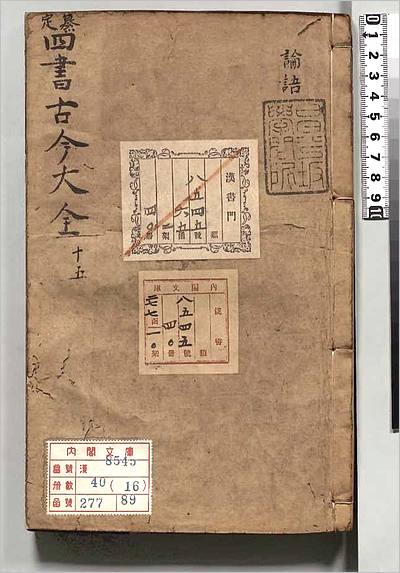 纂定
四書古今大全
十五
論語
昌平坂學問所
漢書門
類
八五四五號
內閣文庫
漢書
類
八五四五號
四〇冊
內閣文庫
番號 漢 8545
冊數 40 (16)
函號 277 89
0 1 2 3 4 5 6 7 8 9 10